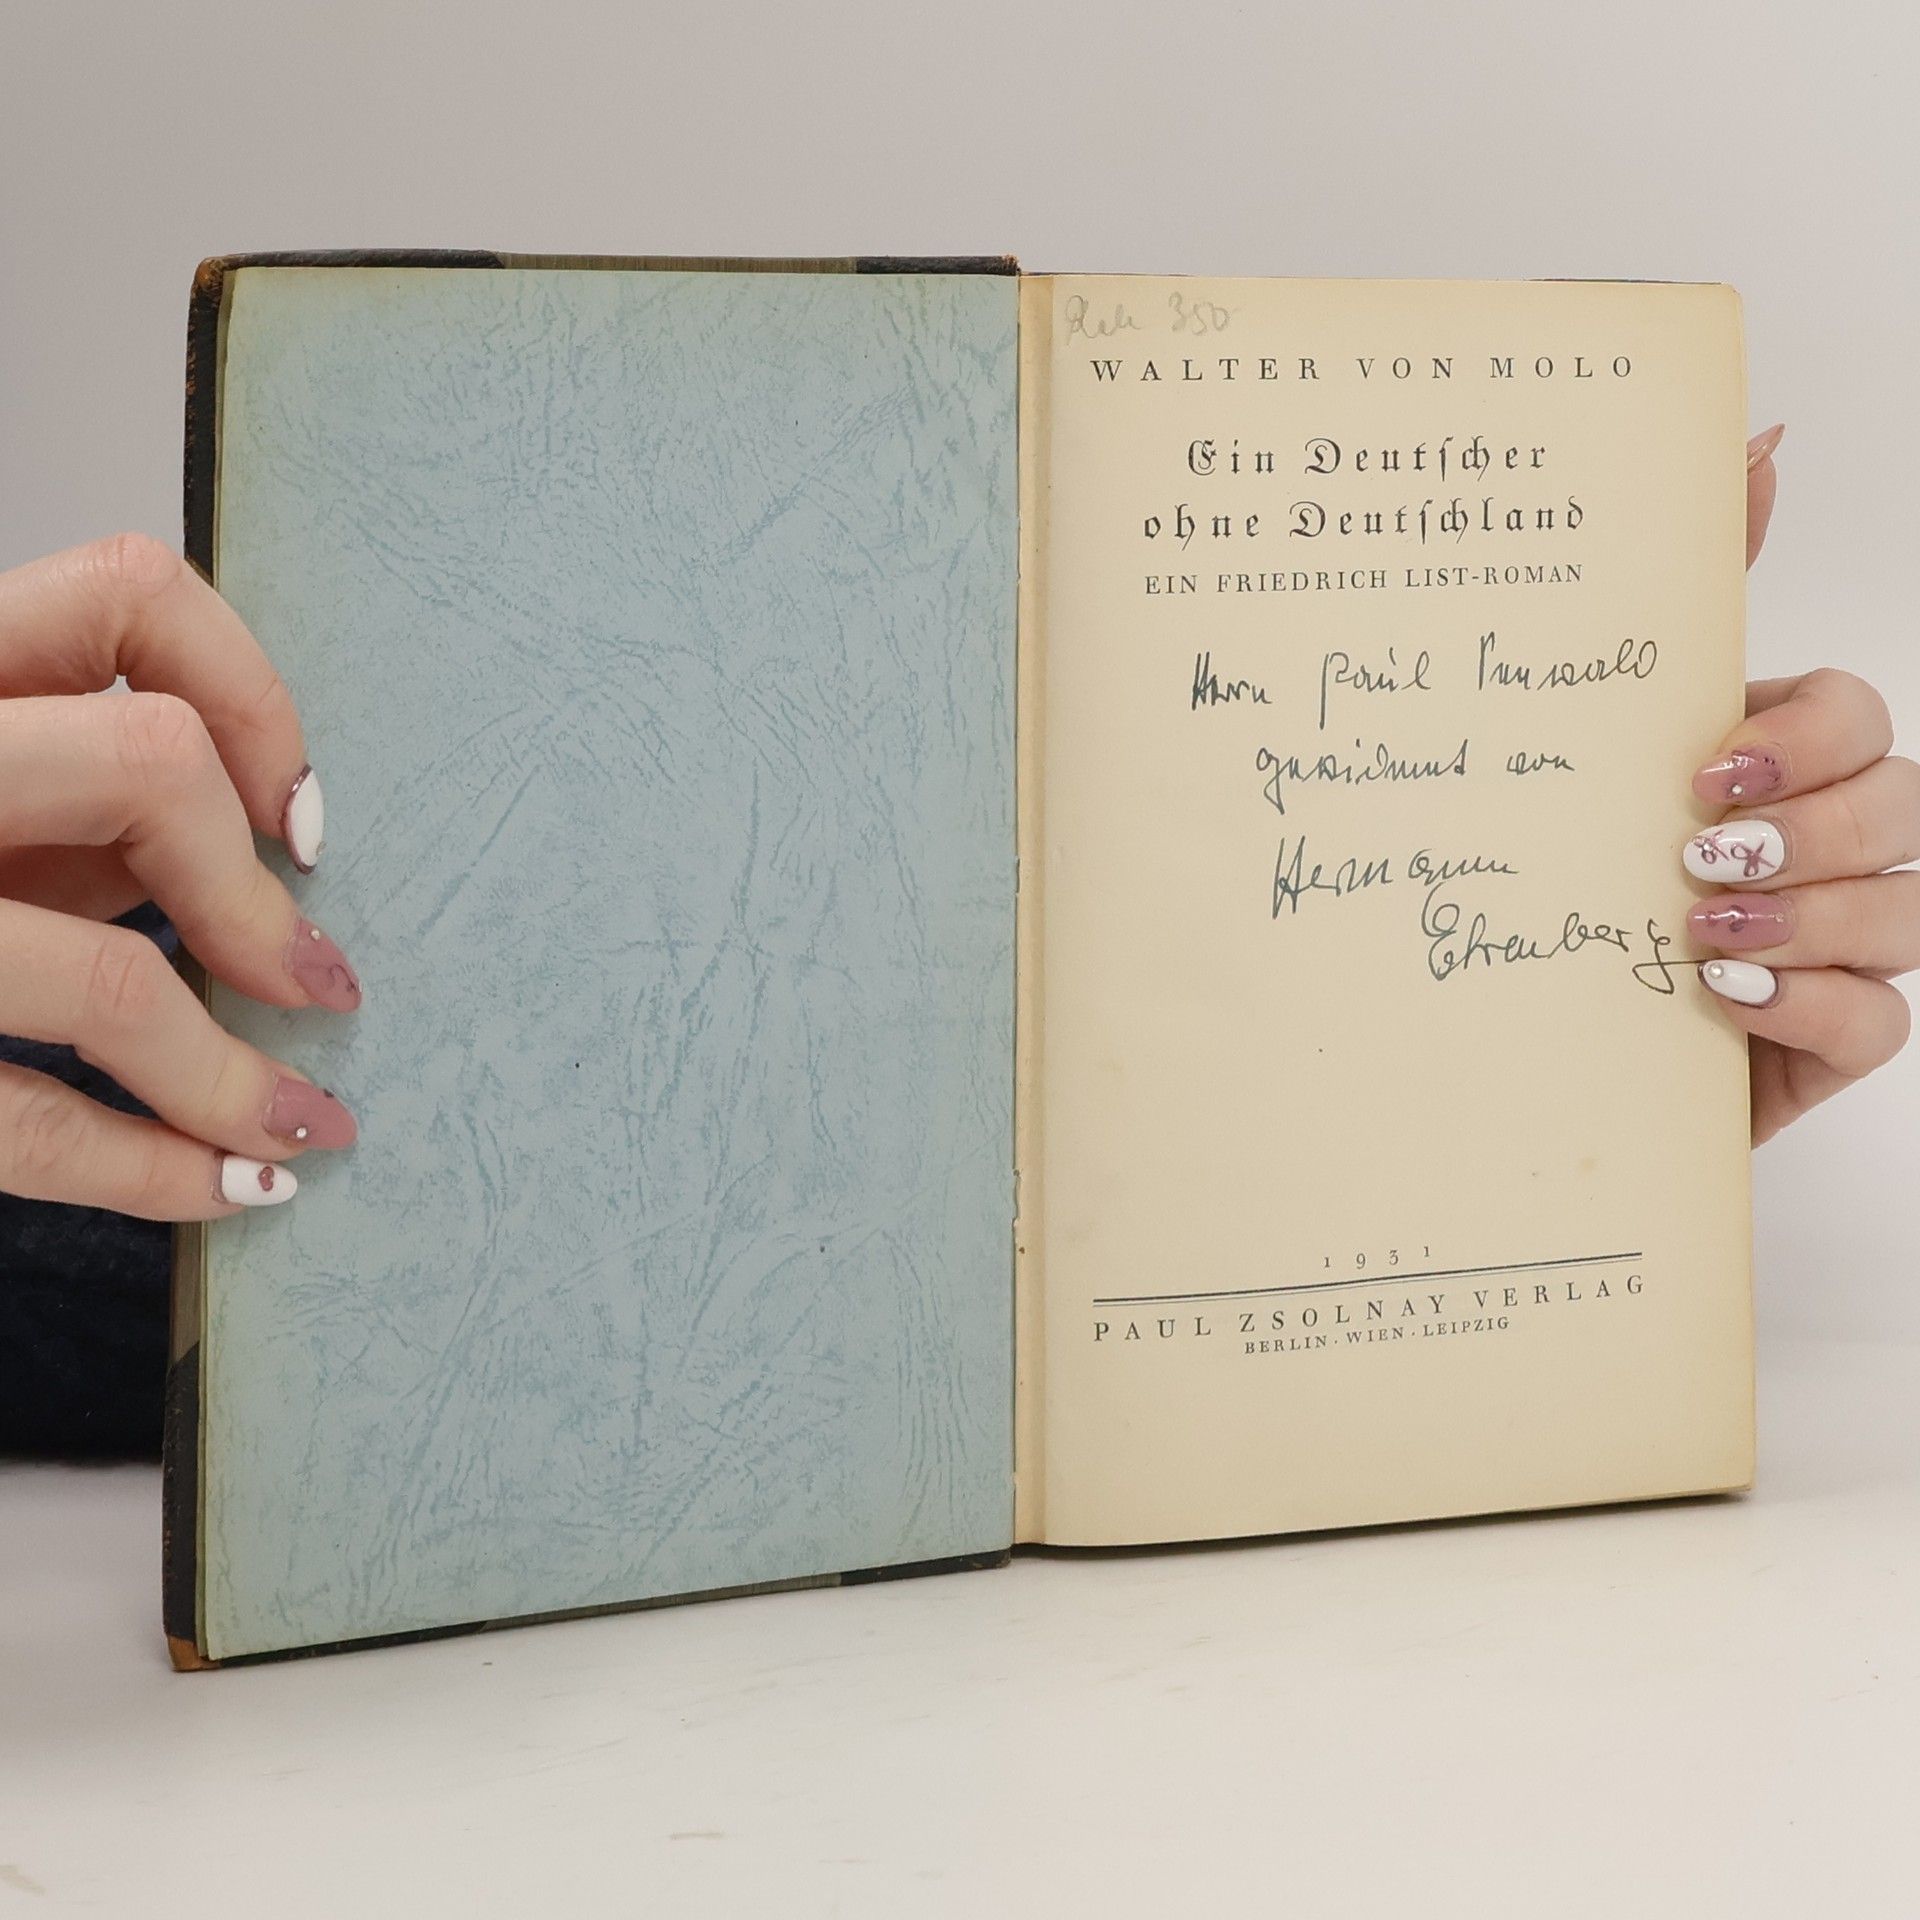 350
WALTER VON MOLO
Ein Deutſcher
ohne Deutſchland
EIN FRIEDRICH LIST-ROMAN
Herrn Paul
gewidmet von
Hermann
Ehrenberg
1931
PAUL ZSOLNAY VERLAG
BERLIN · WIEN · LEIPZIG